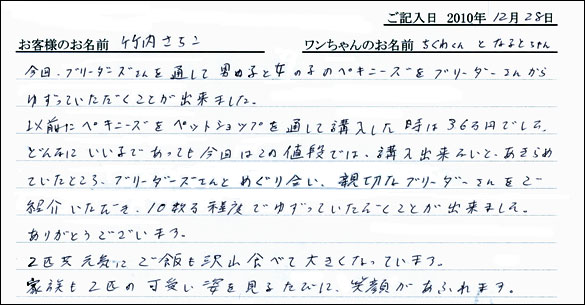 ご記入日 2010年 12月 28日
お客様のお名前 竹内さちこ ワンちゃんのお名前 ちくわくん となるとちゃん
今回、ブリーダーズさんを通して男の子と女の子のペキニーズをブリーダーさんから
ゆずっていただくことが出来ました。
以前にペキニーズをペットショップを通して購入した時は36万円でした。
どんなにいい子であっても今回はこの値段では、購入出来ないと、あきらめ
ていたところ、ブリーダーズさんとめぐり合い、親切なブリーダーさんをご
紹介いただき、10数万程度でゆずっていただくことが出来ました。
ありがとうございます。
2匹共元気にご飯も沢山食べて大きくなっています。
家族も2匹の可愛い姿を見るたびに、笑顔があふれます。